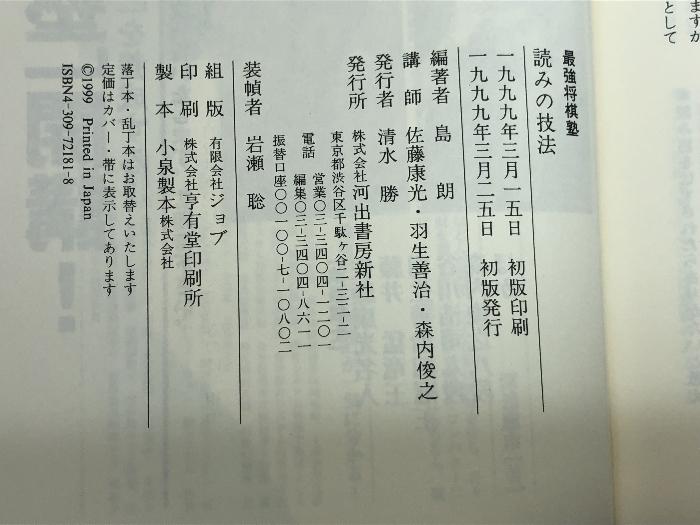 ますが
として
最強将棋塾
読みの技法
一九九九年三月一五日 初版印刷
一九九九年三月二五日 初版発行
編著者 島 朗
講師 佐藤康光・羽生善治・森内俊之
発行者 清水 勝
発行所 株式会社河出書房新社
東京都渋谷区千駄ケ谷二-三二-二
電話 営業〇三-三四〇四-一二〇一
編集〇三-三四〇四-八六一一
振替口座〇〇一〇〇-七-一〇八〇二
装幀者 岩瀬 聡
組版 有限会社ジョブ
印刷 株式会社亨有堂印刷所
製本 小泉製本株式会社
落丁本・乱丁本はお取替えいたします
定価はカバー・帯に表示してあります
©1999 Printed in Japan
ISBN4-309-72181-8